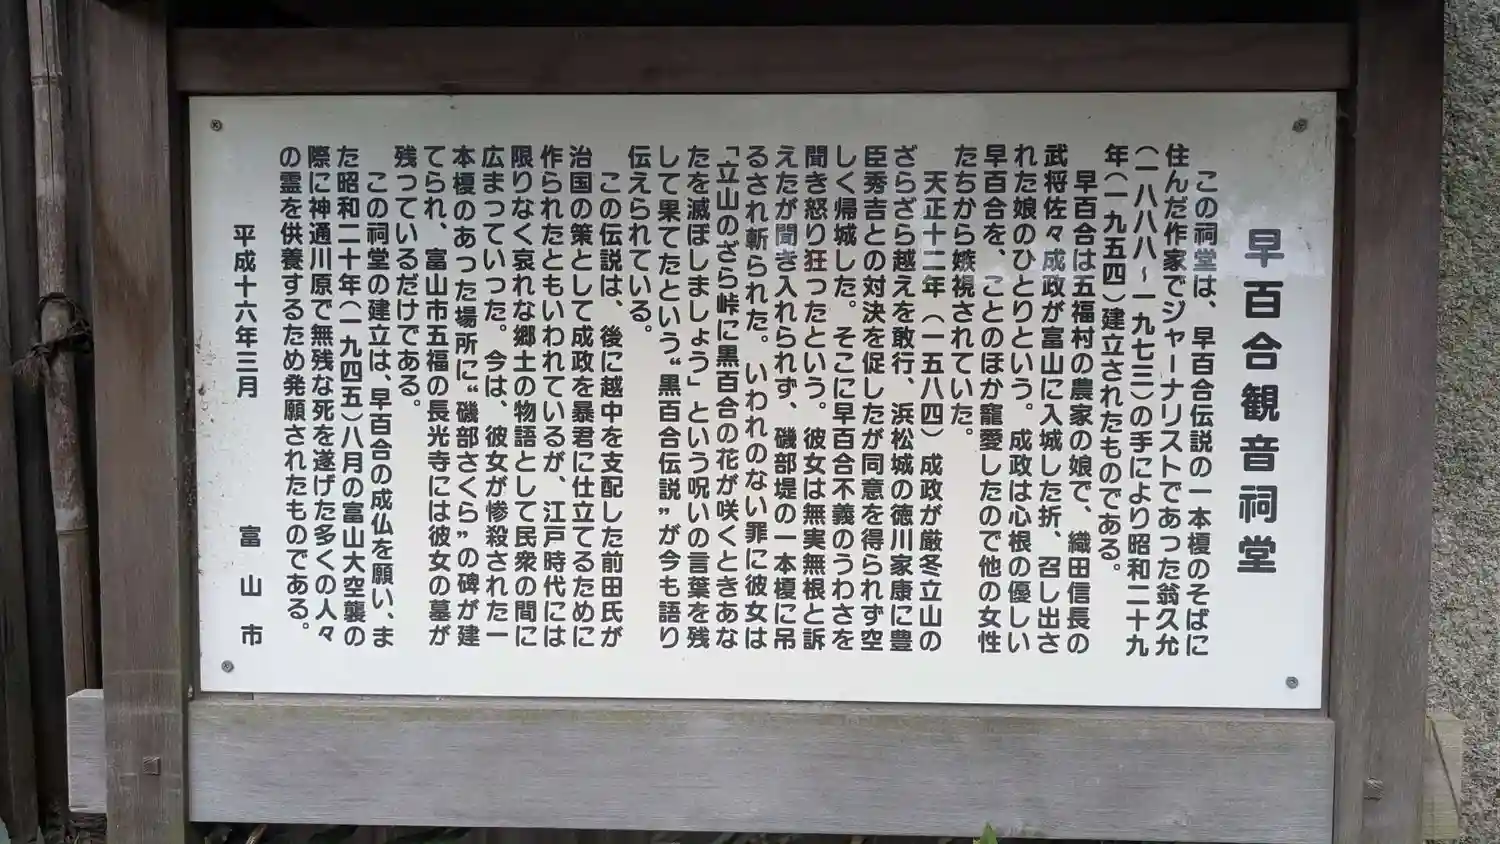 早百合観音祠堂
この祠堂は、早百合伝説の一本榎のそばに
住んだ作家でジャーナリストであった翁久允
（一八八八〜一九七三）の手により昭和二十九
年（一九五四）建立されたものである。
早百合は五福村の農家の娘で、織田信長の
武将佐々成政が富山に入城した折、召し出さ
れた娘のひとりという。成政は心根の優しい
早百合を、ことのほか寵愛したので他の女性
たちから嫉視されていた。
天正十二年（一五八四）成政が厳冬立山の
ざらざら越えを敢行、浜松城の徳川家康に豊
臣秀吉との対決を促したが同意を得られず空
しく帰城した。そこに早百合不義のうわさを
聞き怒り狂ったという。彼女は無実無根と訴
えたが聞き入れられず、磯部堤の一本榎に吊
るされ斬られた。いわれのない罪に彼女は
「立山のざら峠に黒百合の花が咲くときあな
たを滅ぼしましょう」という呪いの言葉を残
して果てたという“黒百合伝説”が今も語り
伝えられている。
この伝説は、後に越中を支配した前田氏が
治国の策として成政を暴君に仕立てるために
作られたともいわれているが、江戸時代には
限りなく哀れな郷土の物語として民衆の間に
広まっていった。今は、彼女が惨殺された一
本榎のあった場所に“磯部さくら”の碑が建
てられ、富山市五福の長光寺には彼女の墓が
残っているだけである。
この祠堂の建立は、早百合の成仏を願い、ま
た昭和二十年（一九四五）八月の富山大空襲の
際に神通川原で無残な死を遂げた多くの人々
の霊を供養するため発願されたものである。
平成十六年三月
富山市